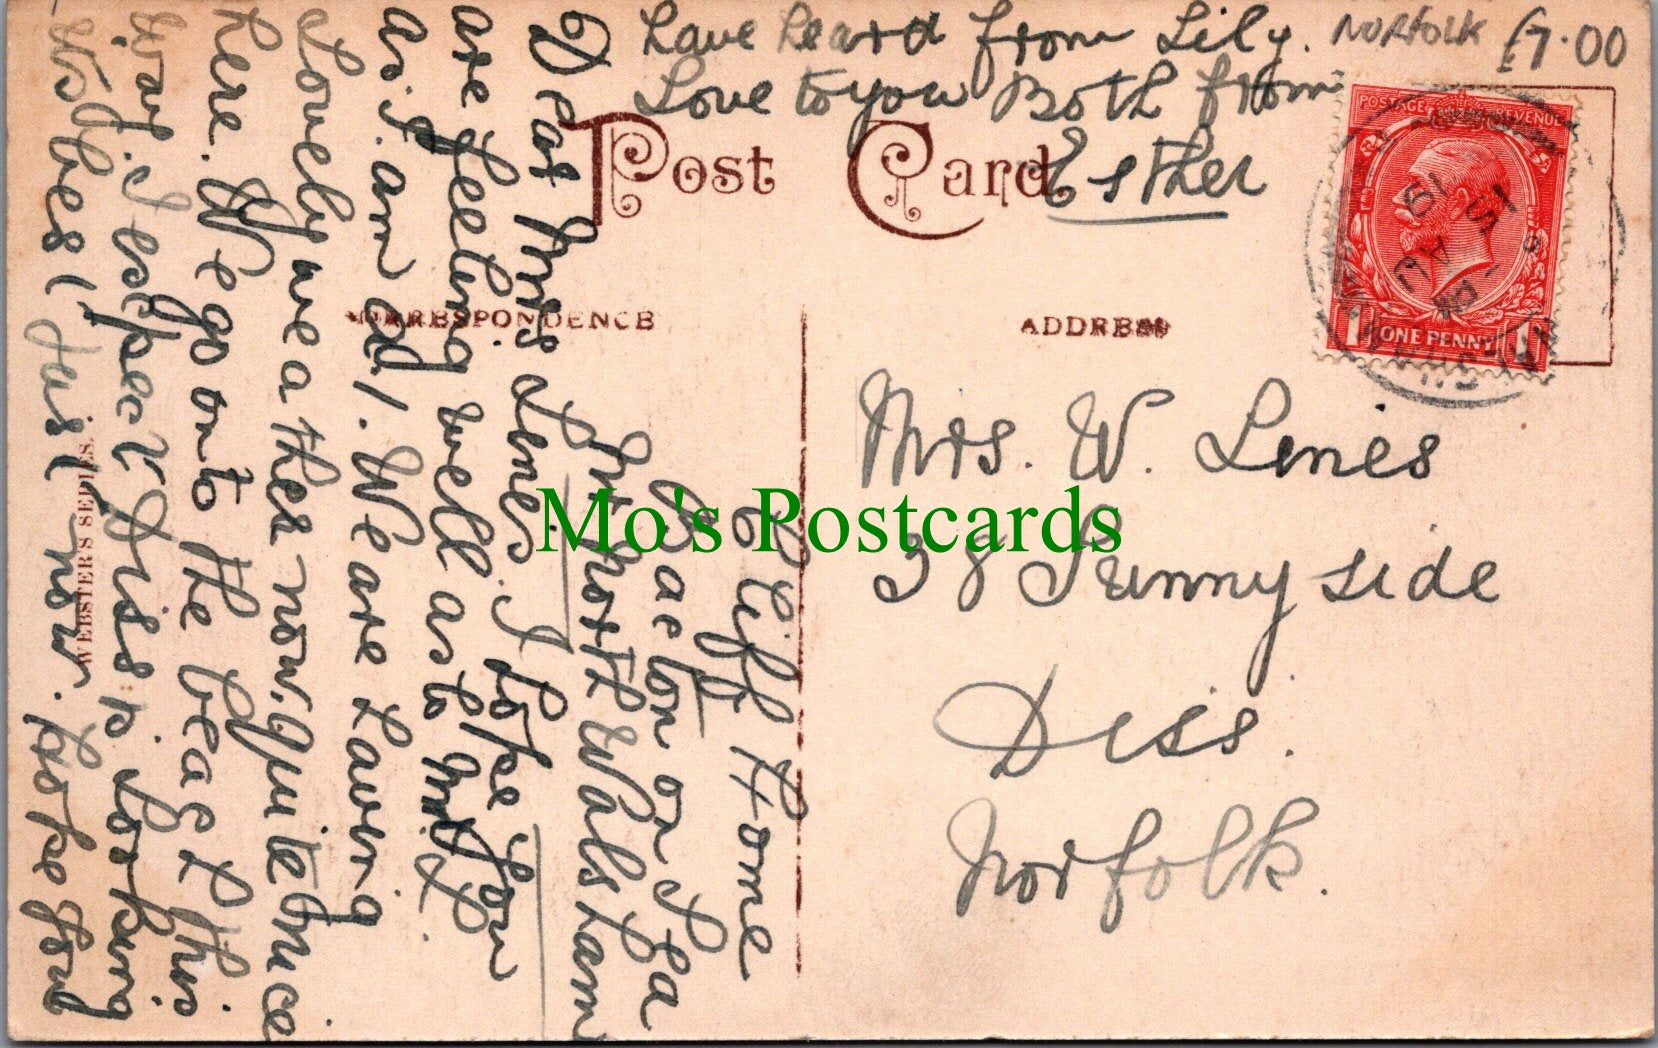 have heard from Lily.
Love to you Both from
Esther
NORFOLK £7.00
Post Card
CORRESPONDENCE
ADDRESS
POSTAGE REVENUE
ONE PENNY
WEBSTER'S SERIES.
Cliff Home
Bacton on Sea
Nr North Walsham
Dear Mrs Lines. I hope you
are feeling well as to Mr L.
as I am ad/. We are having
Lovely weather now, quite nice
here. We go on to the beach this
way. I expect Diss is looking
its best just now. hope you
Mrs. W. Lines
38 Sunny side
Diss.
Norfolk.
Mo's Postcards